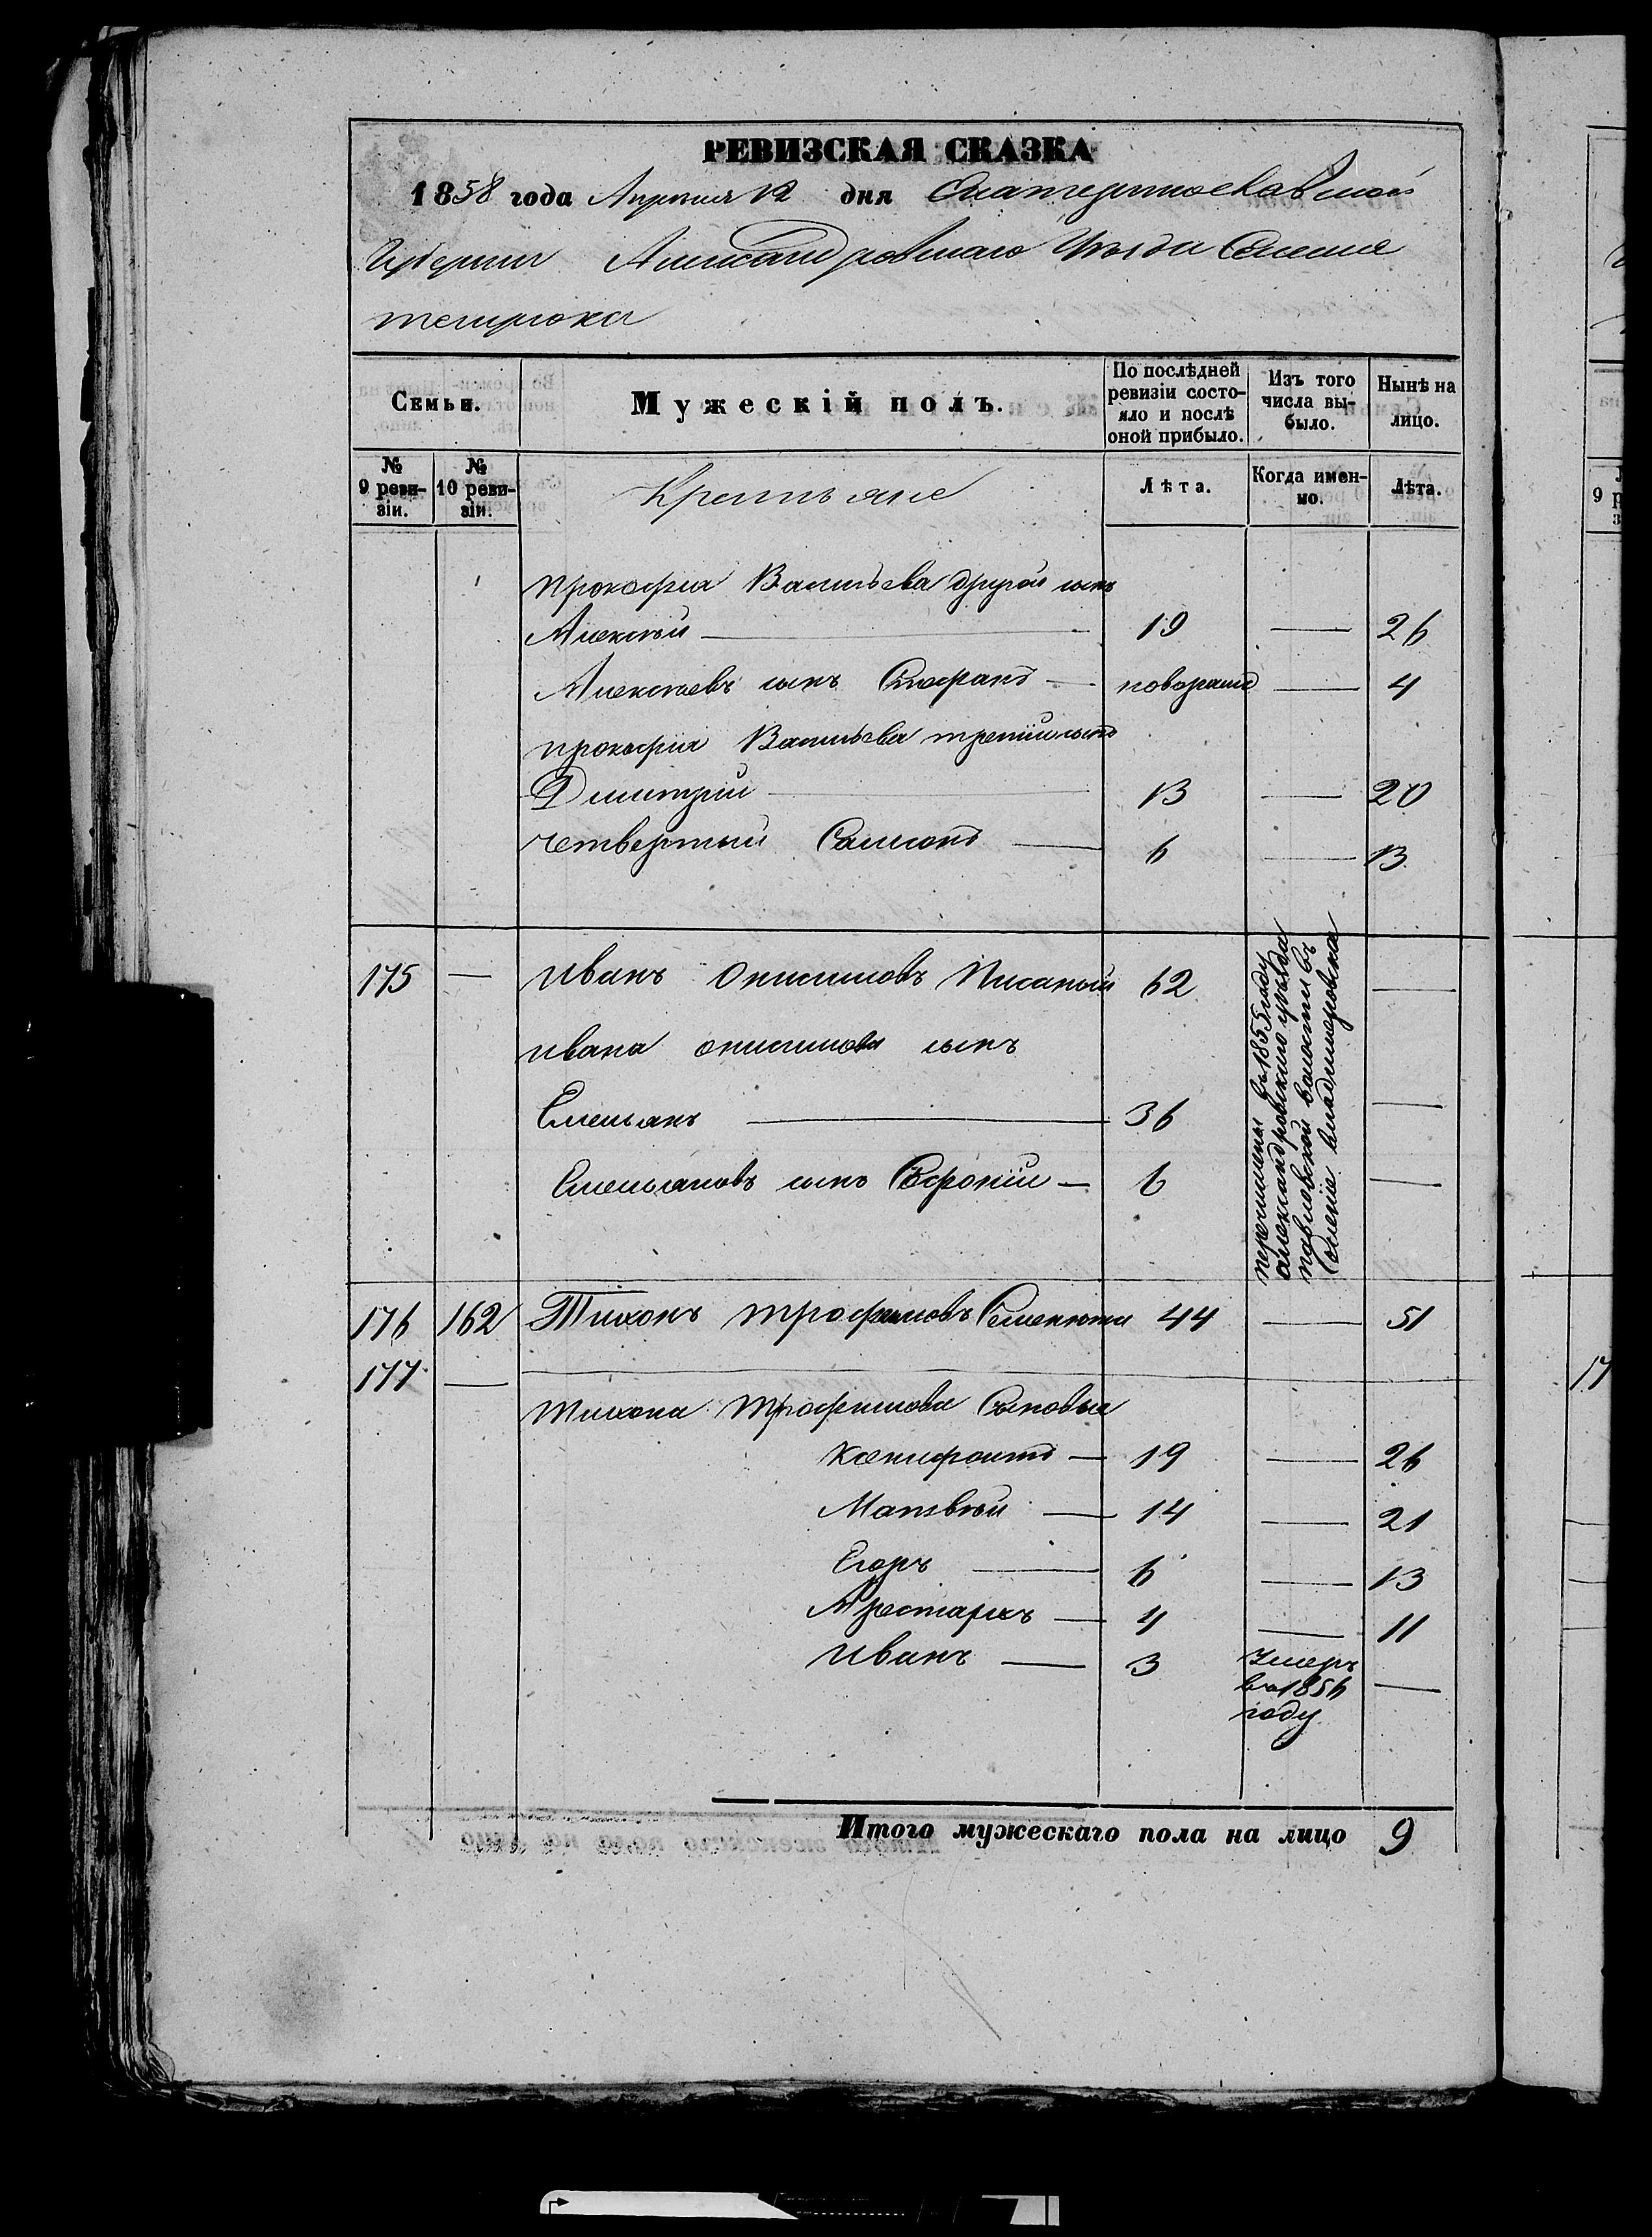 РЕВИЗСКАЯ СКАЗКА
1858 года Апреля 12 дня Екатеринославской
Губернии Александровскаго Уезда Селенiе
темрюка
Семьи. Мужескiй полъ. По послѣдней ревизiи состояло и послѣ оной прибыло. Изъ того числа выбыло. Нынѣ на лицо.
№ 9 ревизiи. № 10 ревизiи. Крестьяне Лѣта. Когда именно. Лѣта.
прокофия Васильева другой сынъ
Алексѣй — 19 — 26
Алексѣевъ сынъ Стефанъ — новорожд — 4
прокофия Васильева третiй сынъ
Дмитрий — 13 — 20
четвертый Самсонъ — 6 — 13
175 — Иванъ Онисимовъ Писаный 62 —
ивана онисимова сынъ
Емельянъ — 36 —
Емельяновъ сынъ Софронiй — 6 —
перечислены въ 1855 году
александровского уезда
павловской волости въ
Селенiе владимеровка
176 162 Тихонъ трофимовъ Семенюта 44 — 51
177 —
Тихона Трофимова Сыновья
Ксенифонтъ — 19 — 26
Матвѣй — 14 — 21
Егоръ — 6 — 13
Арестархъ — 4 — 11
Иванъ — 3 Умеръ —
въ 1856
году
Итого мужескаго пола на лицо 9